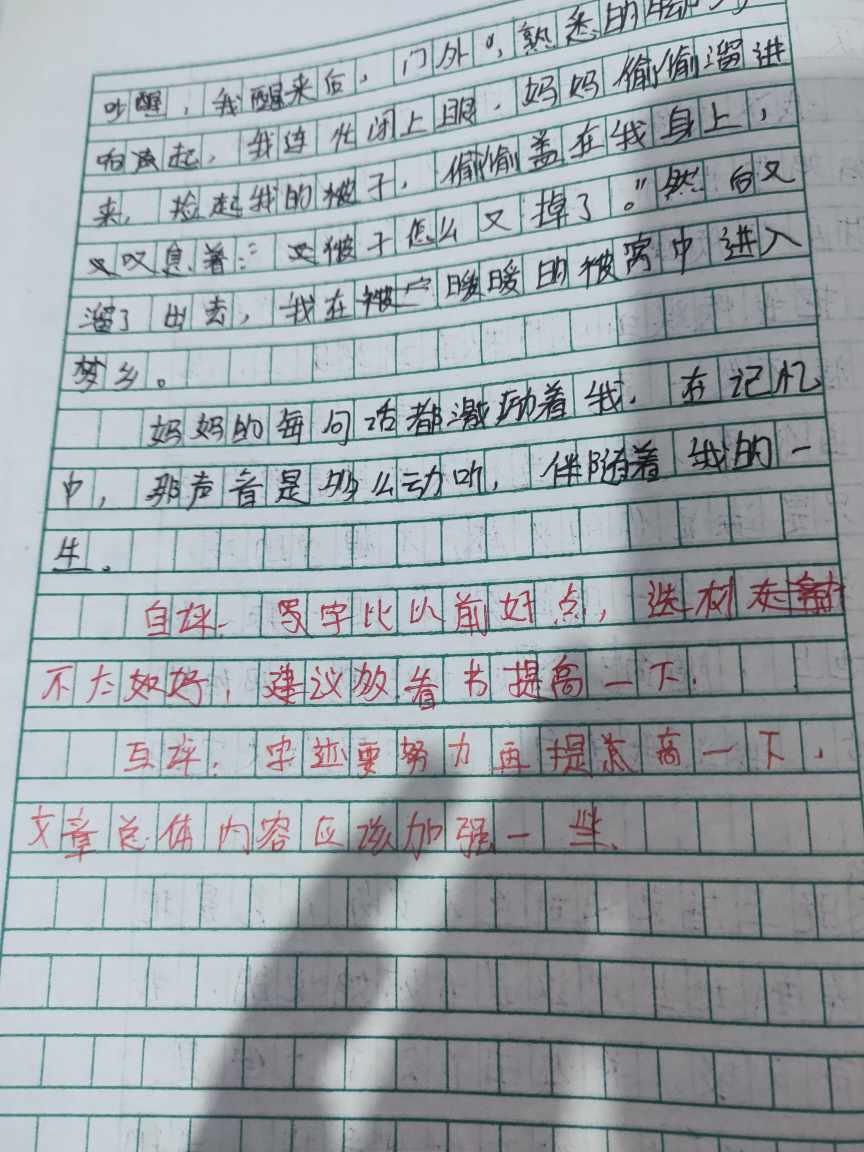 吵醒，我醒来后，门外，熟悉的
响声起，我连忙闭上眼，妈妈偷偷溜进
来，捡起我的被子，偷偷盖在我身上，
又叹息着：“被子怎么又掉了。”然后又
溜了出去，我在暖暖的被窝中进入
梦乡。
妈妈的每句话都激动着我，在记忆
中，那声音是多么动听，伴随着我的一
生。
自评：写字比以前好点，选材
不太好，建议放着书提高一下.
互评：字迹要努力再提高一下，
文章总体内容应该加强一些.